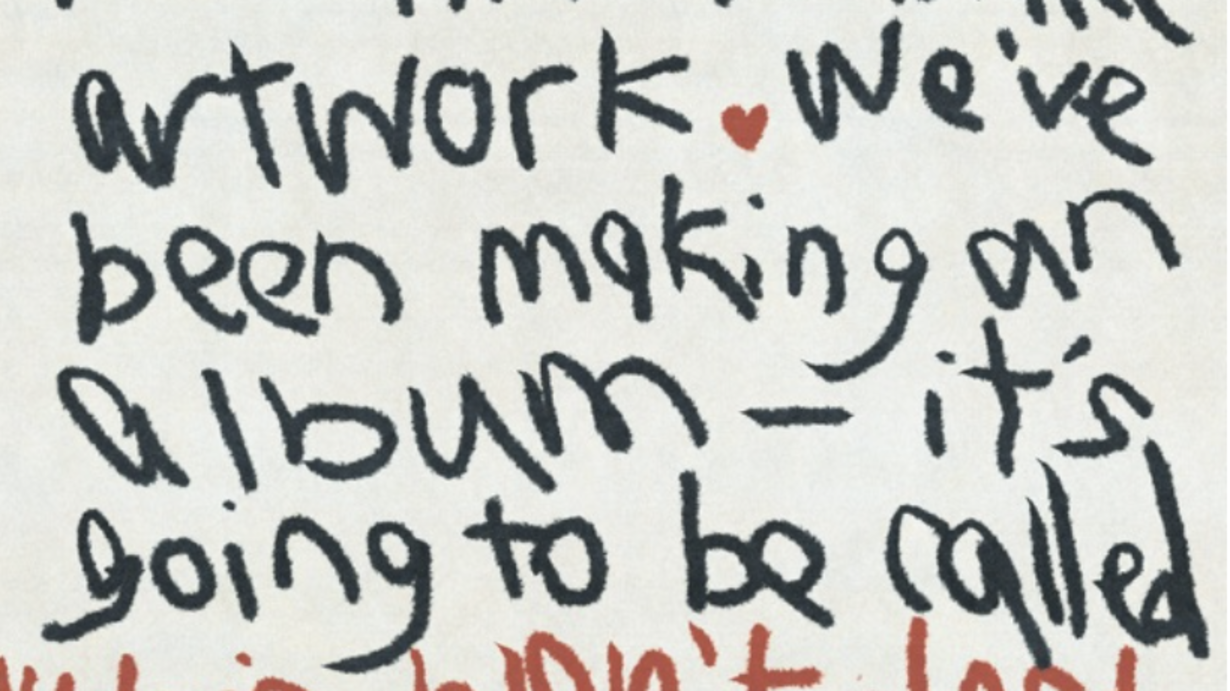 artwork. We've
been making an
album – it's
going to be called